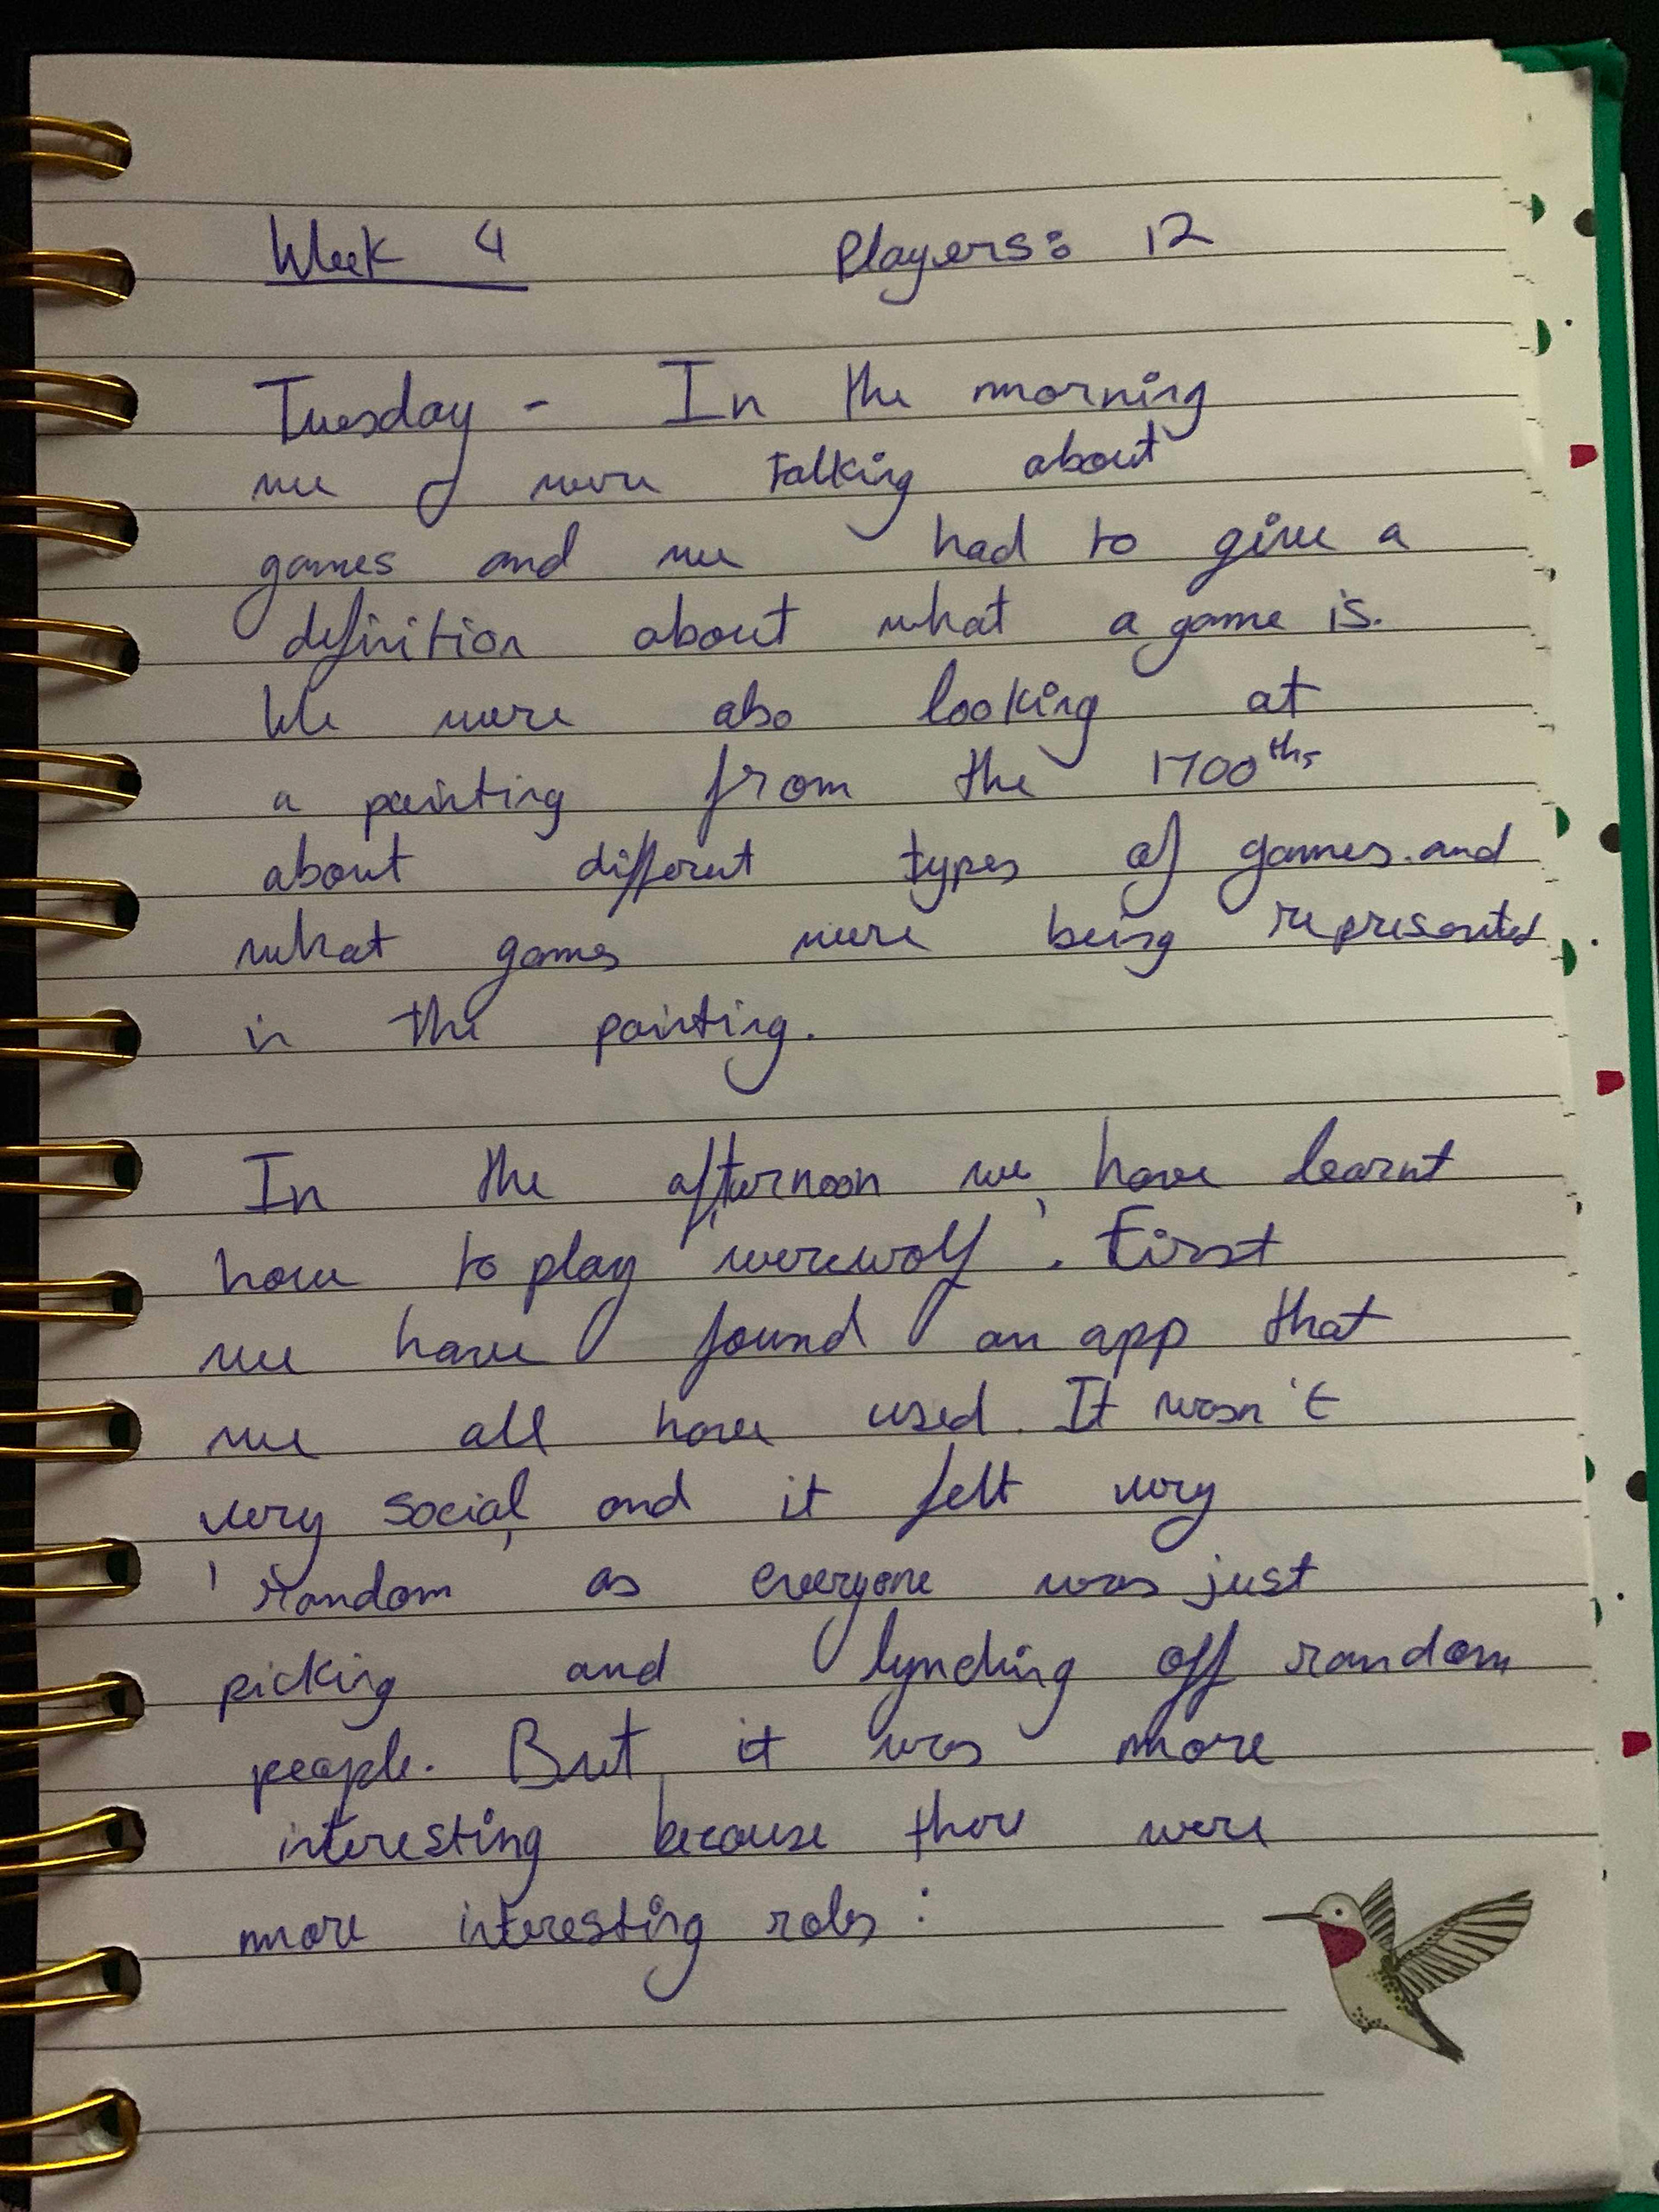 Week 4 Players: 12
Tuesday - In the morning
we were talking about
games and we had to give a
definition about what a game is.
We were also looking at
a painting from the 1700ths
about different types of games and
what games were being represented
in the painting.
In the afternoon we have learnt
how to play 'werewolf'. First
we have found an app that
we all have used. It wasn't
very social and it felt very
'random' as everyone was just
picking and lynching off random
people. But it was more
interesting because there were
more interesting roles: